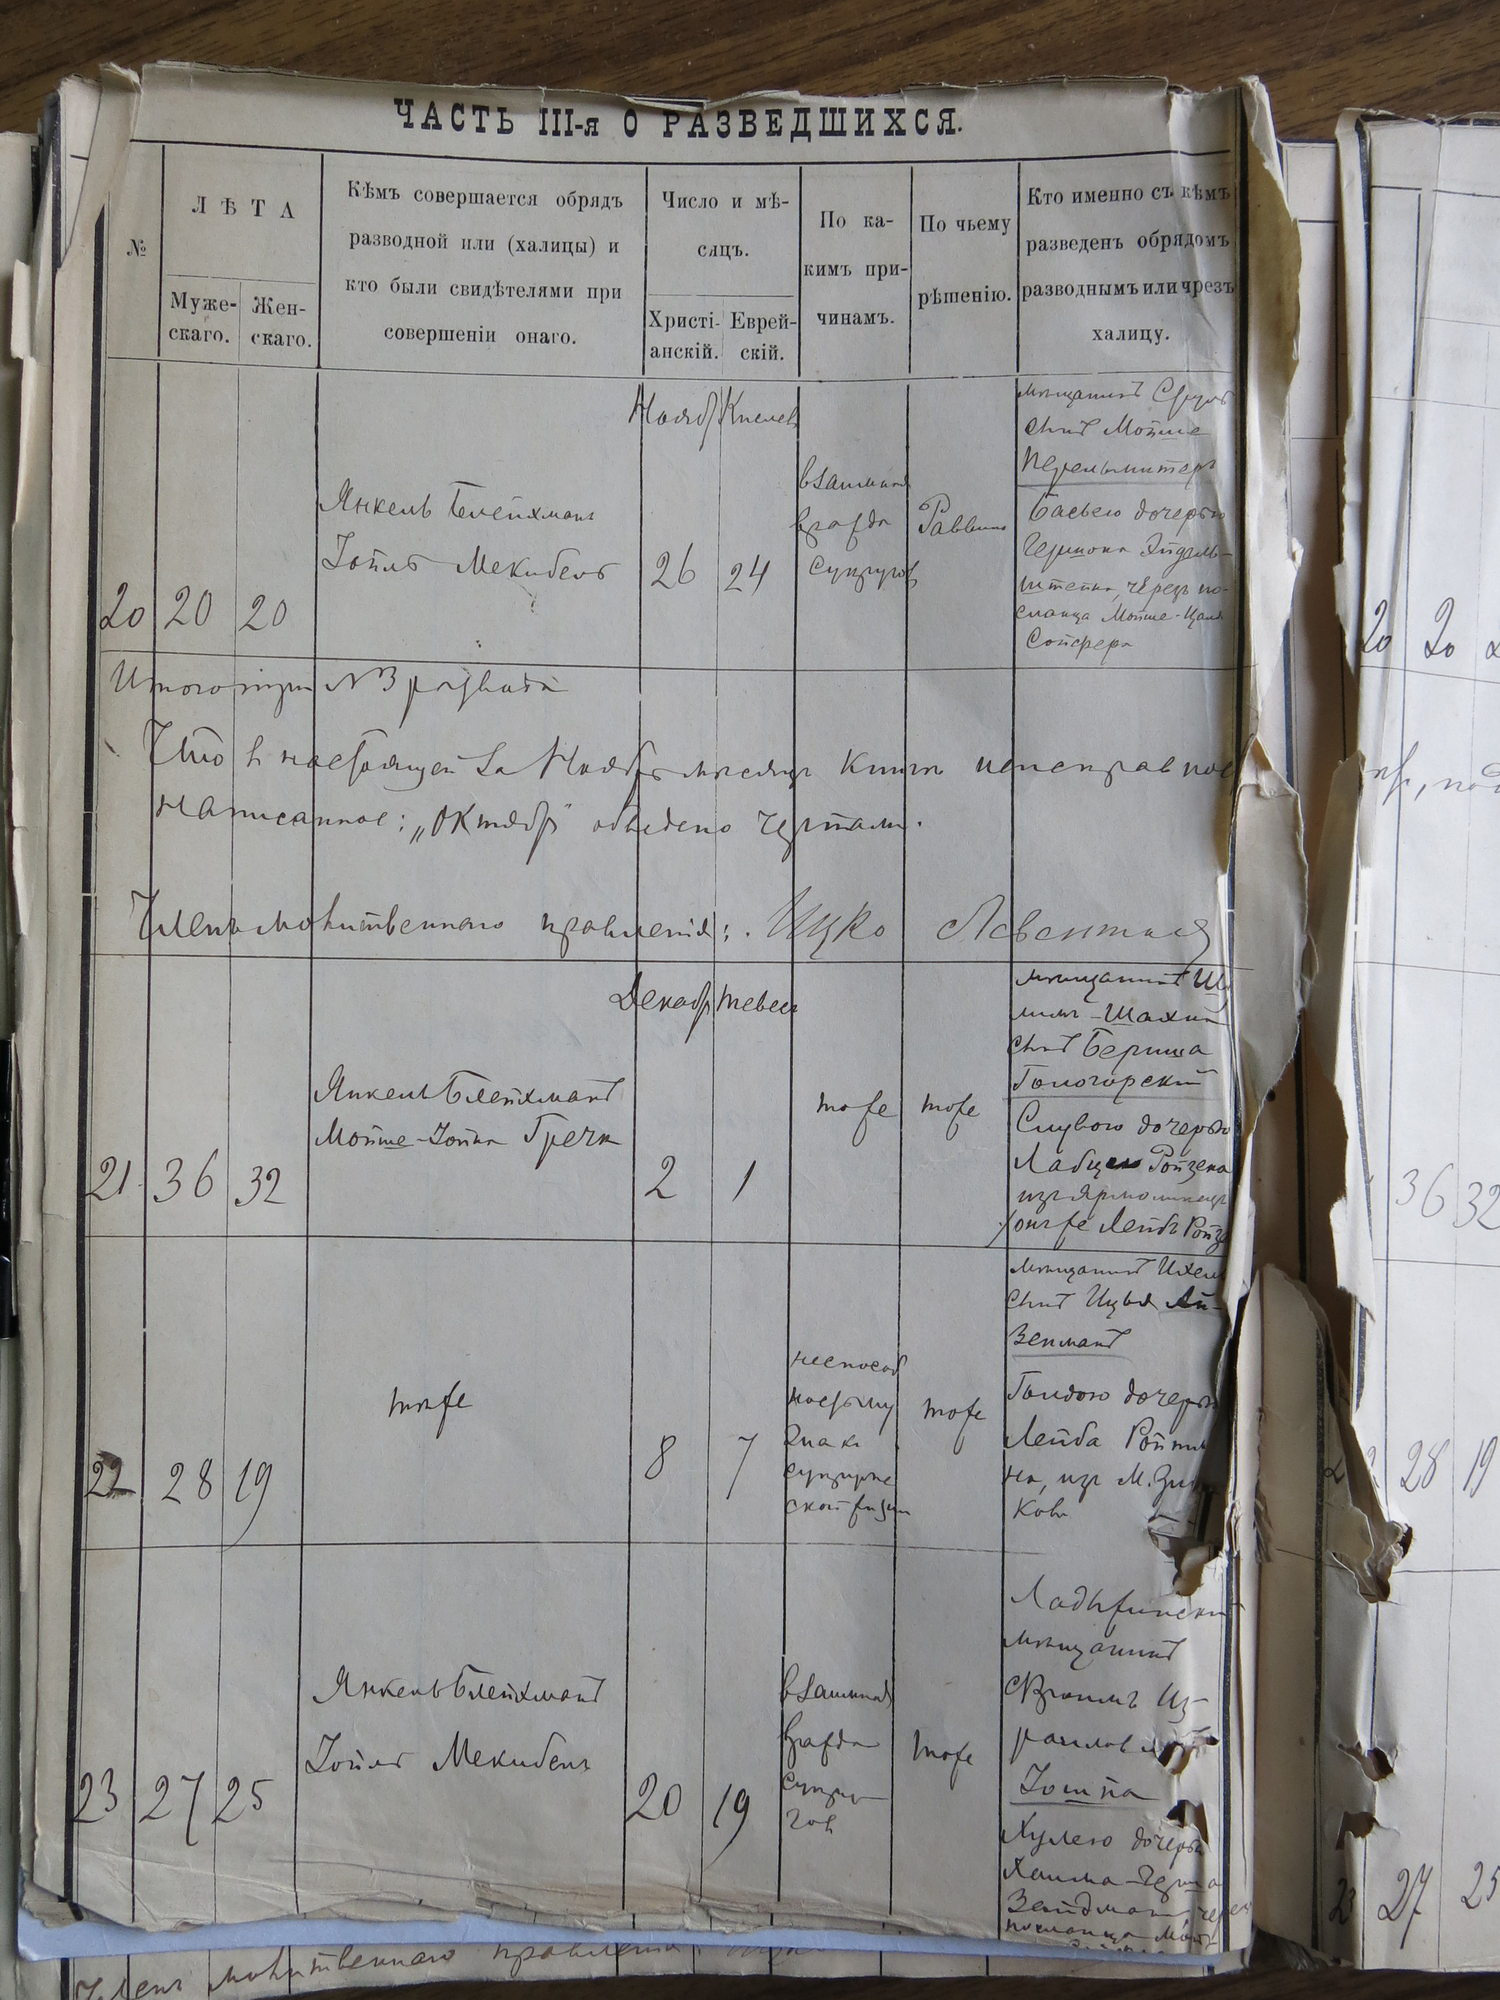 ЧАСТЬ III-я О РАЗВЕДШИХСЯ.
№
ЛѢТА
Муже-
скаго.
Жен-
скаго.
Кѣмъ совершается обрядъ
разводной или (халицы) и
кто были свидѣтелями при
совершеніи онаго.
Число и мѣ-
сяцъ.
Христі-
анскій.
Еврей-
скій.
По ка-
кимъ при-
чинамъ.
По чьему
рѣшенію.
Кто именно съ кѣмъ
разведенъ обрядомъ
разводнымъ или чрезъ
халицу.
20
20
20
Янкель Блейхманъ
Іойль Мекибель
Нояб
Кислев
26
24
взаимная
вражда
супруговъ
Раввина
мѣщанинъ Сруль
сынъ Мойше
Перельмитеръ
Басьею дочерью
Гершона Эйдель-
штейна, черезъ по-
сланца Мойше-
Сойфера
Итого три №3 развода
Что в настоящей за Ноябрь мѣсяцъ книгѣ неисправное
написанное: „Октябрь" обведено чертами.
Членъ молитвенного правленія: Ицко Левентиль
21
36
32
Янкель Блейхманъ
Мойше-Іойна Гречка
Декабр
Тевес
2
1
тоже
тоже
мѣщанинъ
-Шахна
сынъ Бериша
Гологорскій
Слувою дочерью
Ройзена
изъ Ярмолинецъ
онъ же Лейбъ
22
28
19
тоже
8
7
неспособ
ность къ
супруже
ской жизни
тоже
мѣщанинъ Ихель
сынъ Ицья Ай-
зенманъ
Голдою дочерью
Лейба
на, изъ М. Зинь
кова
23
27
25
Янкель Блейхманъ
Іойль Мекибель
20
19
взаимная
вражда
супру-
говъ
тоже
Ладыжинскій
мѣщанинъ
Сроимъ Из-
раилов
дочерью
Хаима-Герша
Зейдмана через
посланца
20
20
36
32
28
19
23
27
25
Членъ молитвенного правленія: Ицко